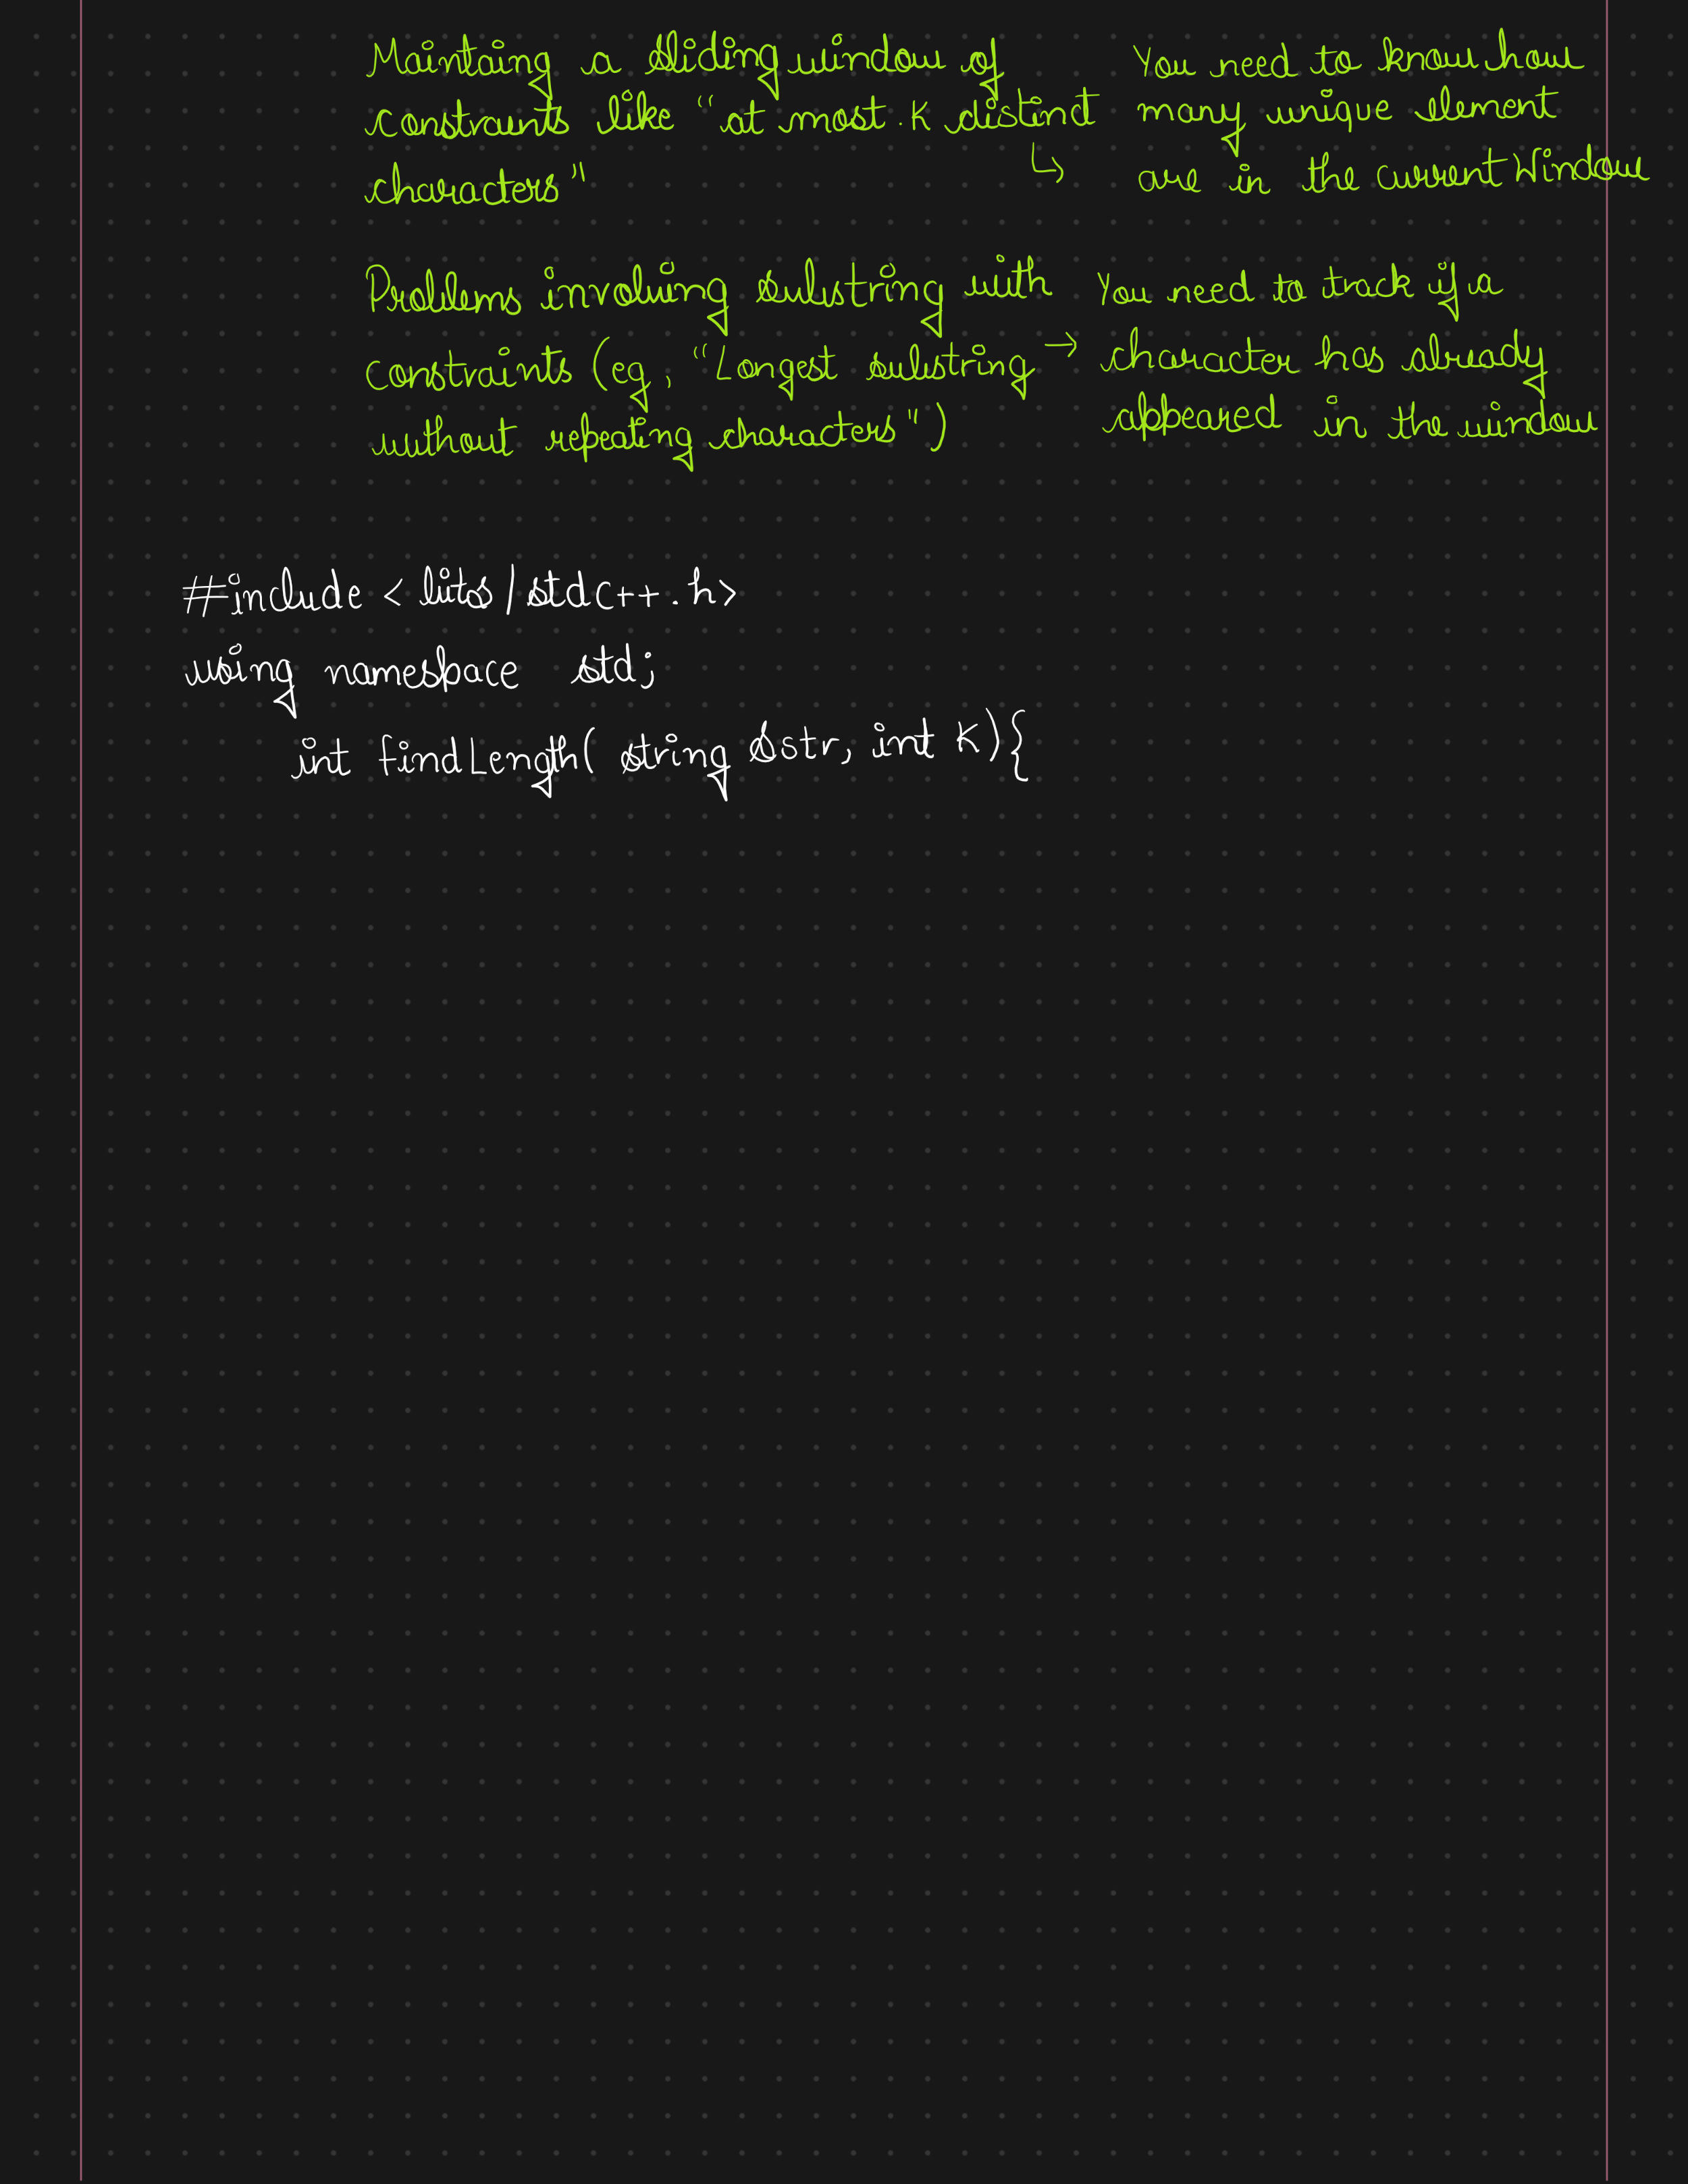 Maintaing a sliding window of
constraints like "at most K distinct
characters"
↳ You need to know how
many unique element
are in the current Window
Problems involving substring with
constraints (eg, "Longest substring
without repeating characters")
→ You need to track if a
character has already
appeared in the window
#include <bits/stdc++.h>
using namespace std;
int findLength( string &str, int K){